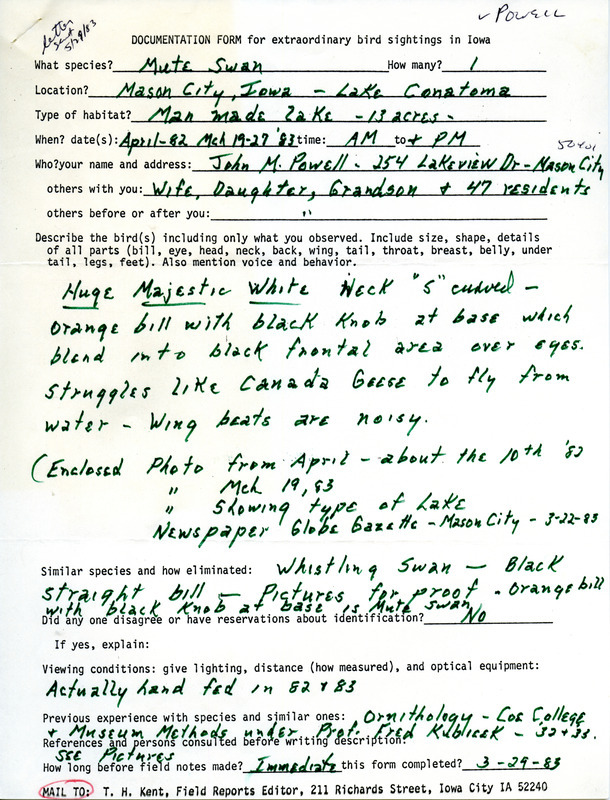 v POWELL
Letter sent 5/29/83
DOCUMENTATION FORM for extraordinary bird sightings in Iowa
What species? Mute Swan How many? 1
Location? Mason City, Iowa - Lake Conatoma
Type of habitat? Man made lake - 13 acres -
When? date(s): April-82 Mch 19-27 '83 time: AM to + PM
50401
Who?your name and address: John M. Powell - 254 Lakeview Dr - Mason City
others with you: Wife, Daughter, Grandson + 47 residents
others before or after you: "
Describe the bird(s) including only what you observed. Include size, shape, details
of all parts (bill, eye, head, neck, back, wing, tail, throat, breast, belly, under
tail, legs, feet). Also mention voice and behavior.
Huge Majestic White Neck "S" curved -
orange bill with black Knob at base which
blend into black frontal area over eyes.
Struggles like Canada Geese to fly from
water - Wing beats are noisy.
(Enclosed Photo from April - about the 10th '82
" Mch 19, 83
" Showing type of Lake
Newspaper Globe Gazette - Mason City - 3-22-83
Similar species and how eliminated: Whistling Swan - Black
straight bill - Pictures for proof - Orange bill
with black Knob at base is Mute Swan
Did any one disagree or have reservations about identification? No
If yes, explain:
Viewing conditions: give lighting, distance (how measured), and optical equipment:
Actually hand fed in 82 + 83
Previous experience with species and similar ones: Ornithology - Coe College
+ Museum Methods under Prof. Fred Kublicek - 32 + 33.
References and persons consulted before writing description:
See Pictures
How long before field notes made? Immediate this form completed? 3-29-83
MAIL TO: T. H. Kent, Field Reports Editor, 211 Richards Street, Iowa City IA 52240